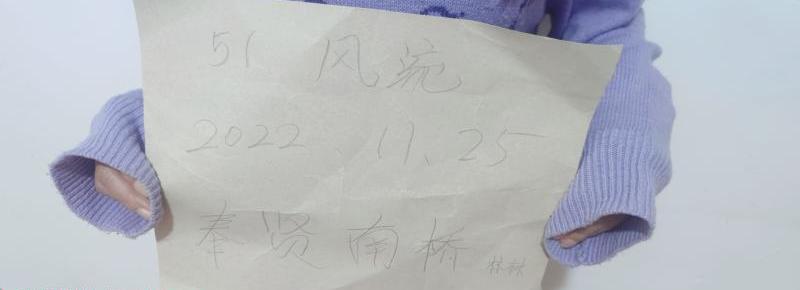 51 风苑
2022、11、25
奉贤南桥 林林